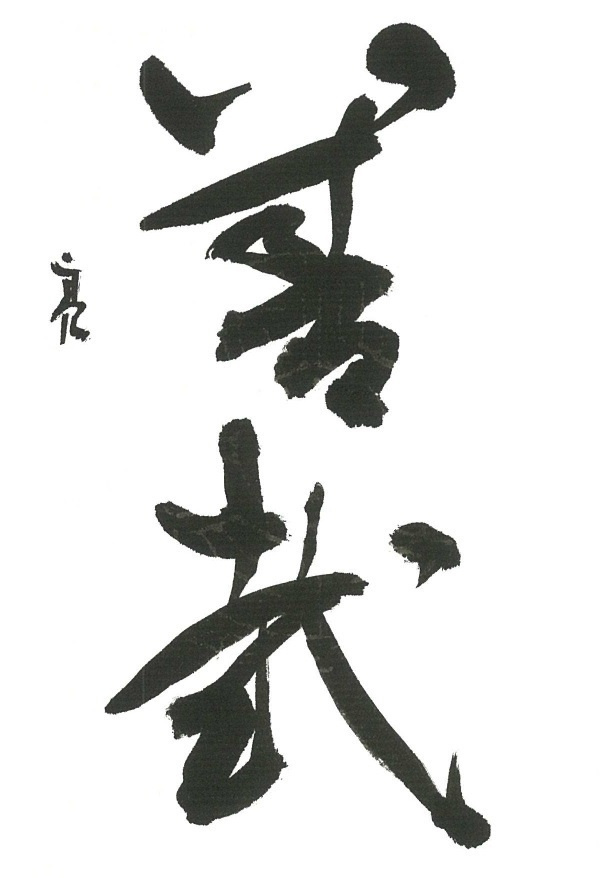 善哉
亮